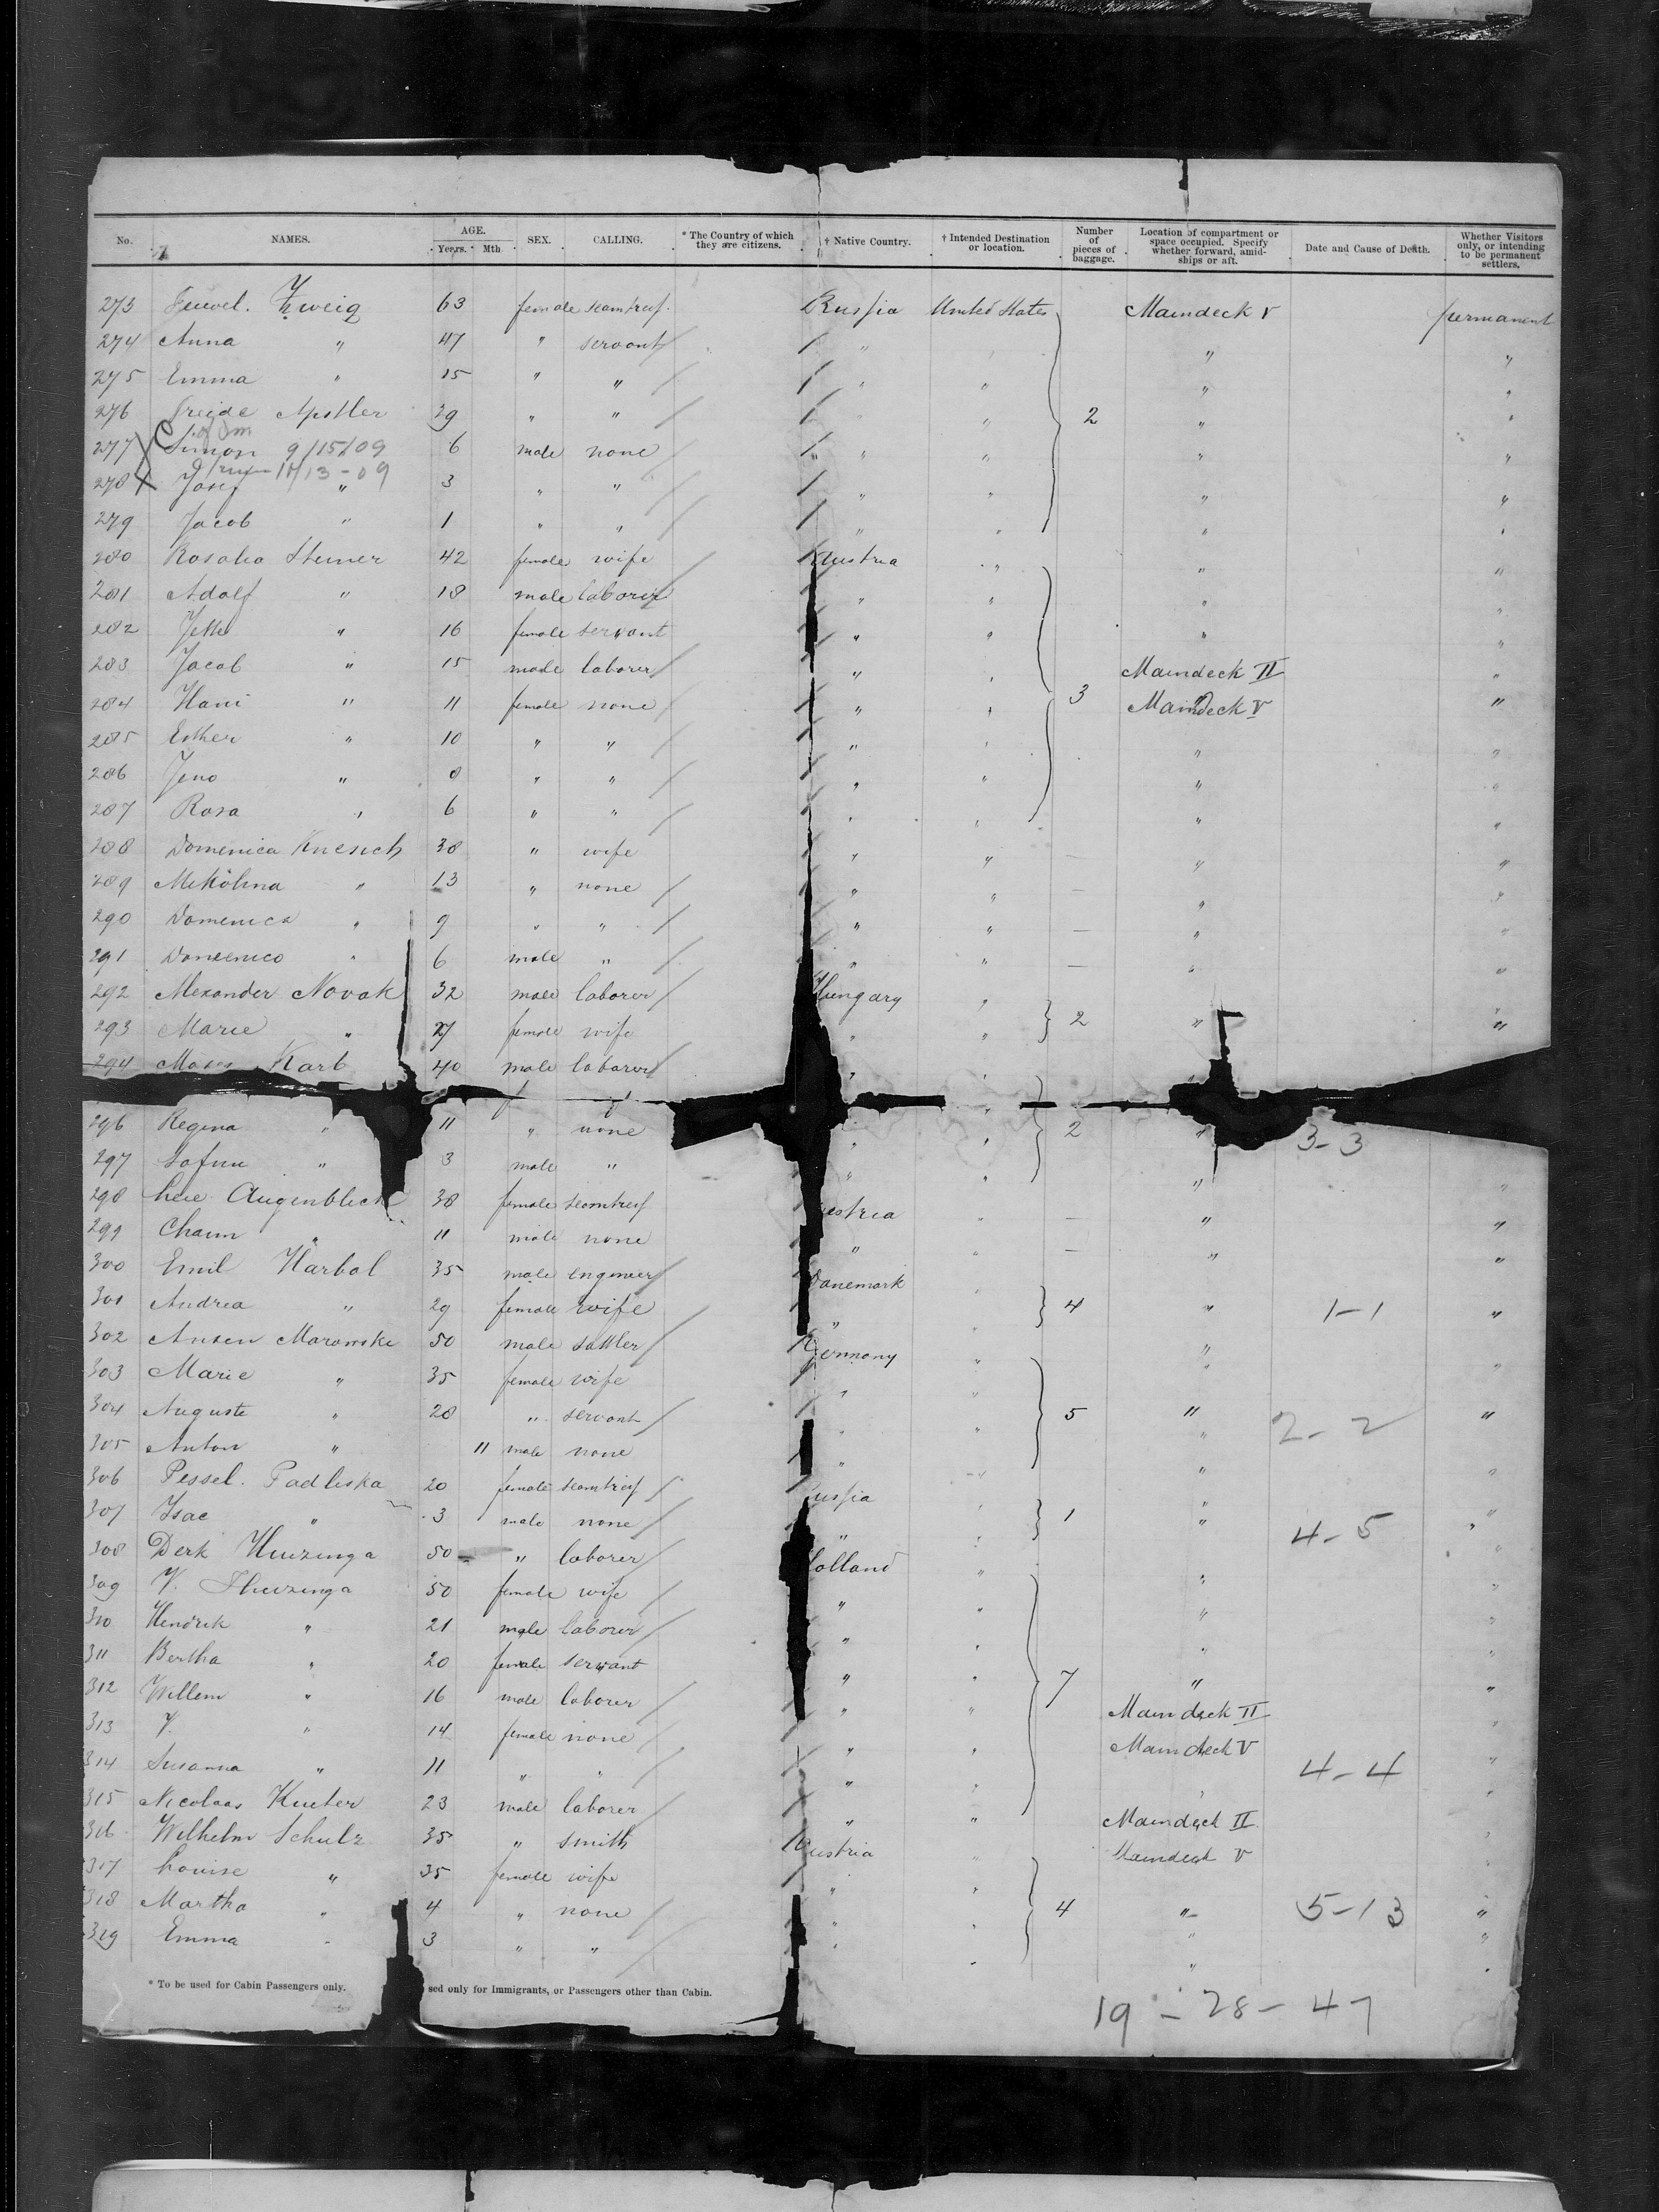 No. NAMES. AGE. Years. Mth. SEX. CALLING. * The Country of which they are citizens. † Native Country. † Intended Destination or location. Number of pieces of baggage. Location of compartment or space occupied. Specify whether forward, amidships or aft. Date and Cause of Death. Whether Visitors only, or intending to be permanent settlers.
273 Zweig 63 female Russia United States Maindeck V permanent
274 Anna " 47 " servant " " "
275 Emma " 15 " " " " " "
276 39 " " " " 2 " "
277 Simon 9/15/09 6 male none " " " "
278 Josef " 11/13-09 3 " " " " " "
279 Jacob " 1 " " " " " "
280 Rosalia Steiner 42 female wife Austria " " "
281 Adolf " 18 male laborer " " " "
282 " 16 female servant " " " "
283 Jacob " 15 male laborer " " Maindeck II "
284 Hani " 11 female none " " 3 Maindeck V "
285 Esther " 10 " " " " " "
286 Jeno " 8 " " " " " "
287 Rosa " 6 " " " " " "
288 Domenica 38 " wife " " — " "
289 " 13 " none " " — " "
290 Domenica " 9 " " " " — " "
291 Domenico " 6 male " " " — " "
292 Alexander Novak 32 male laborer Hungary " " "
293 Marie " female wife " " 2 " "
294 Moses Karb 40 male laborer " "
296 Regina " 11 " none " " 2 " 3-3
297 " 3 male " " " "
298 Augenblick 38 female " — " "
299 Chaim " 11 male none " " — " "
300 Emil Harbol 35 male engineer Danemark "
301 Andrea " 29 female wife " " 4 " 1-1 "
302 Marowski 50 male sattler Germany " "
303 Marie " 35 female wife " " " "
304 Auguste " 28 " servant " " 5 " 2-2 "
305 Anton " 11 male none " " " "
306 Pessel. Padliska 20 female " " "
307 Isac " 3 male none " " 1 " 4-5 "
308 Derk Huizinga 50 " laborer Holland " " "
309 Huizinga 50 female wife " " " "
310 Hendrik " 21 male laborer " " " "
311 Bertha " 20 female servant " " 7 " "
312 Willem " 16 male laborer " " Maindeck II "
313 " 14 female none " " Maindeck V "
314 Susanna " 11 " " " " " 4-4 "
315 Nicolaas 23 male laborer " " Maindeck II "
316 Wilhelm Schulz 35 " smith Austria " Maindeck V "
317 Louise " 35 female wife " "
318 Martha " 4 " none " " 4 " 5-13 "
319 Emma " 3 " " " " " "
* To be used for Cabin Passengers only. sed only for Immigrants, or Passengers other than Cabin.
19 - 28 - 47